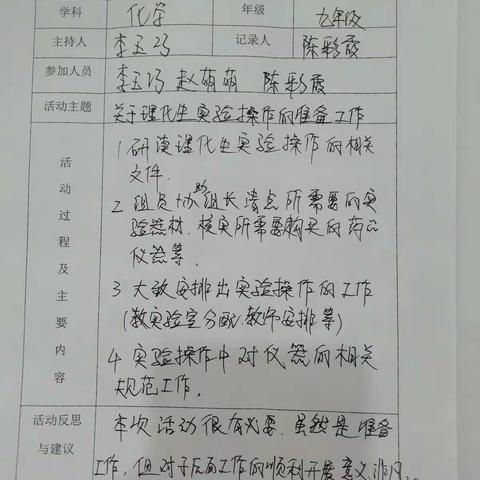 学科 化学 年级 九年级
主持人 李玉巧 记录人 陈彩霞
参加人员 李玉巧 赵萌萌 陈彩霞
活动主题 关于理化生实验操作的准备工作
活动过程及主要内容
1 研读理化生实验操作的相关
文件.
2 组员协助组长清点所需要的实
验器材.核实所需要购买的药品
仪器等.
3 大致安排出实验操作的工作
(教实验室分配/教师安排等)
4 实验操作中对仪器的相关
规范工作.
活动反思
与建议
本次活动很有必要.虽然是准备
工作,但对于后面工作的顺利开展意义非凡.